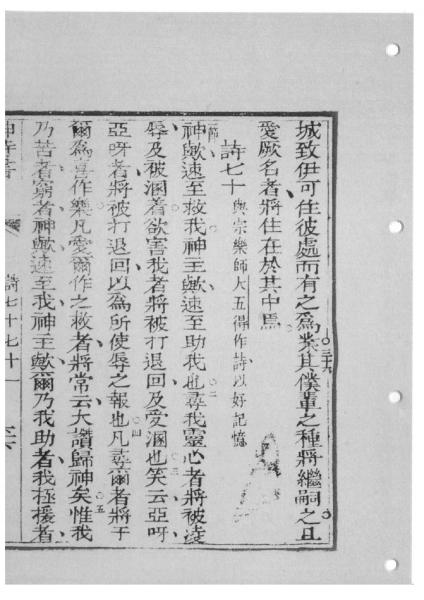 城致伊可住彼處而有之爲業○三十六其僕輩之種將繼嗣之且
愛厥名者將住在於其中焉
詩七十與宗樂師大五得作詩以好記憶
一節神歟速至救我神主歟速至助我也○二尋我靈心者將被凌
辱及被溷着欲害我者將被打退回及受溷也○三笑云亞呀
亞呀者將被打退回以爲所使辱之報也○四凡尋爾者將于
爾爲喜作樂凡愛爾作之救者將常云大讚歸神矣○五惟我
乃苦者窮者神歟速至我神主歟爾乃我助者我極援者
神詩書 詩七十七十一